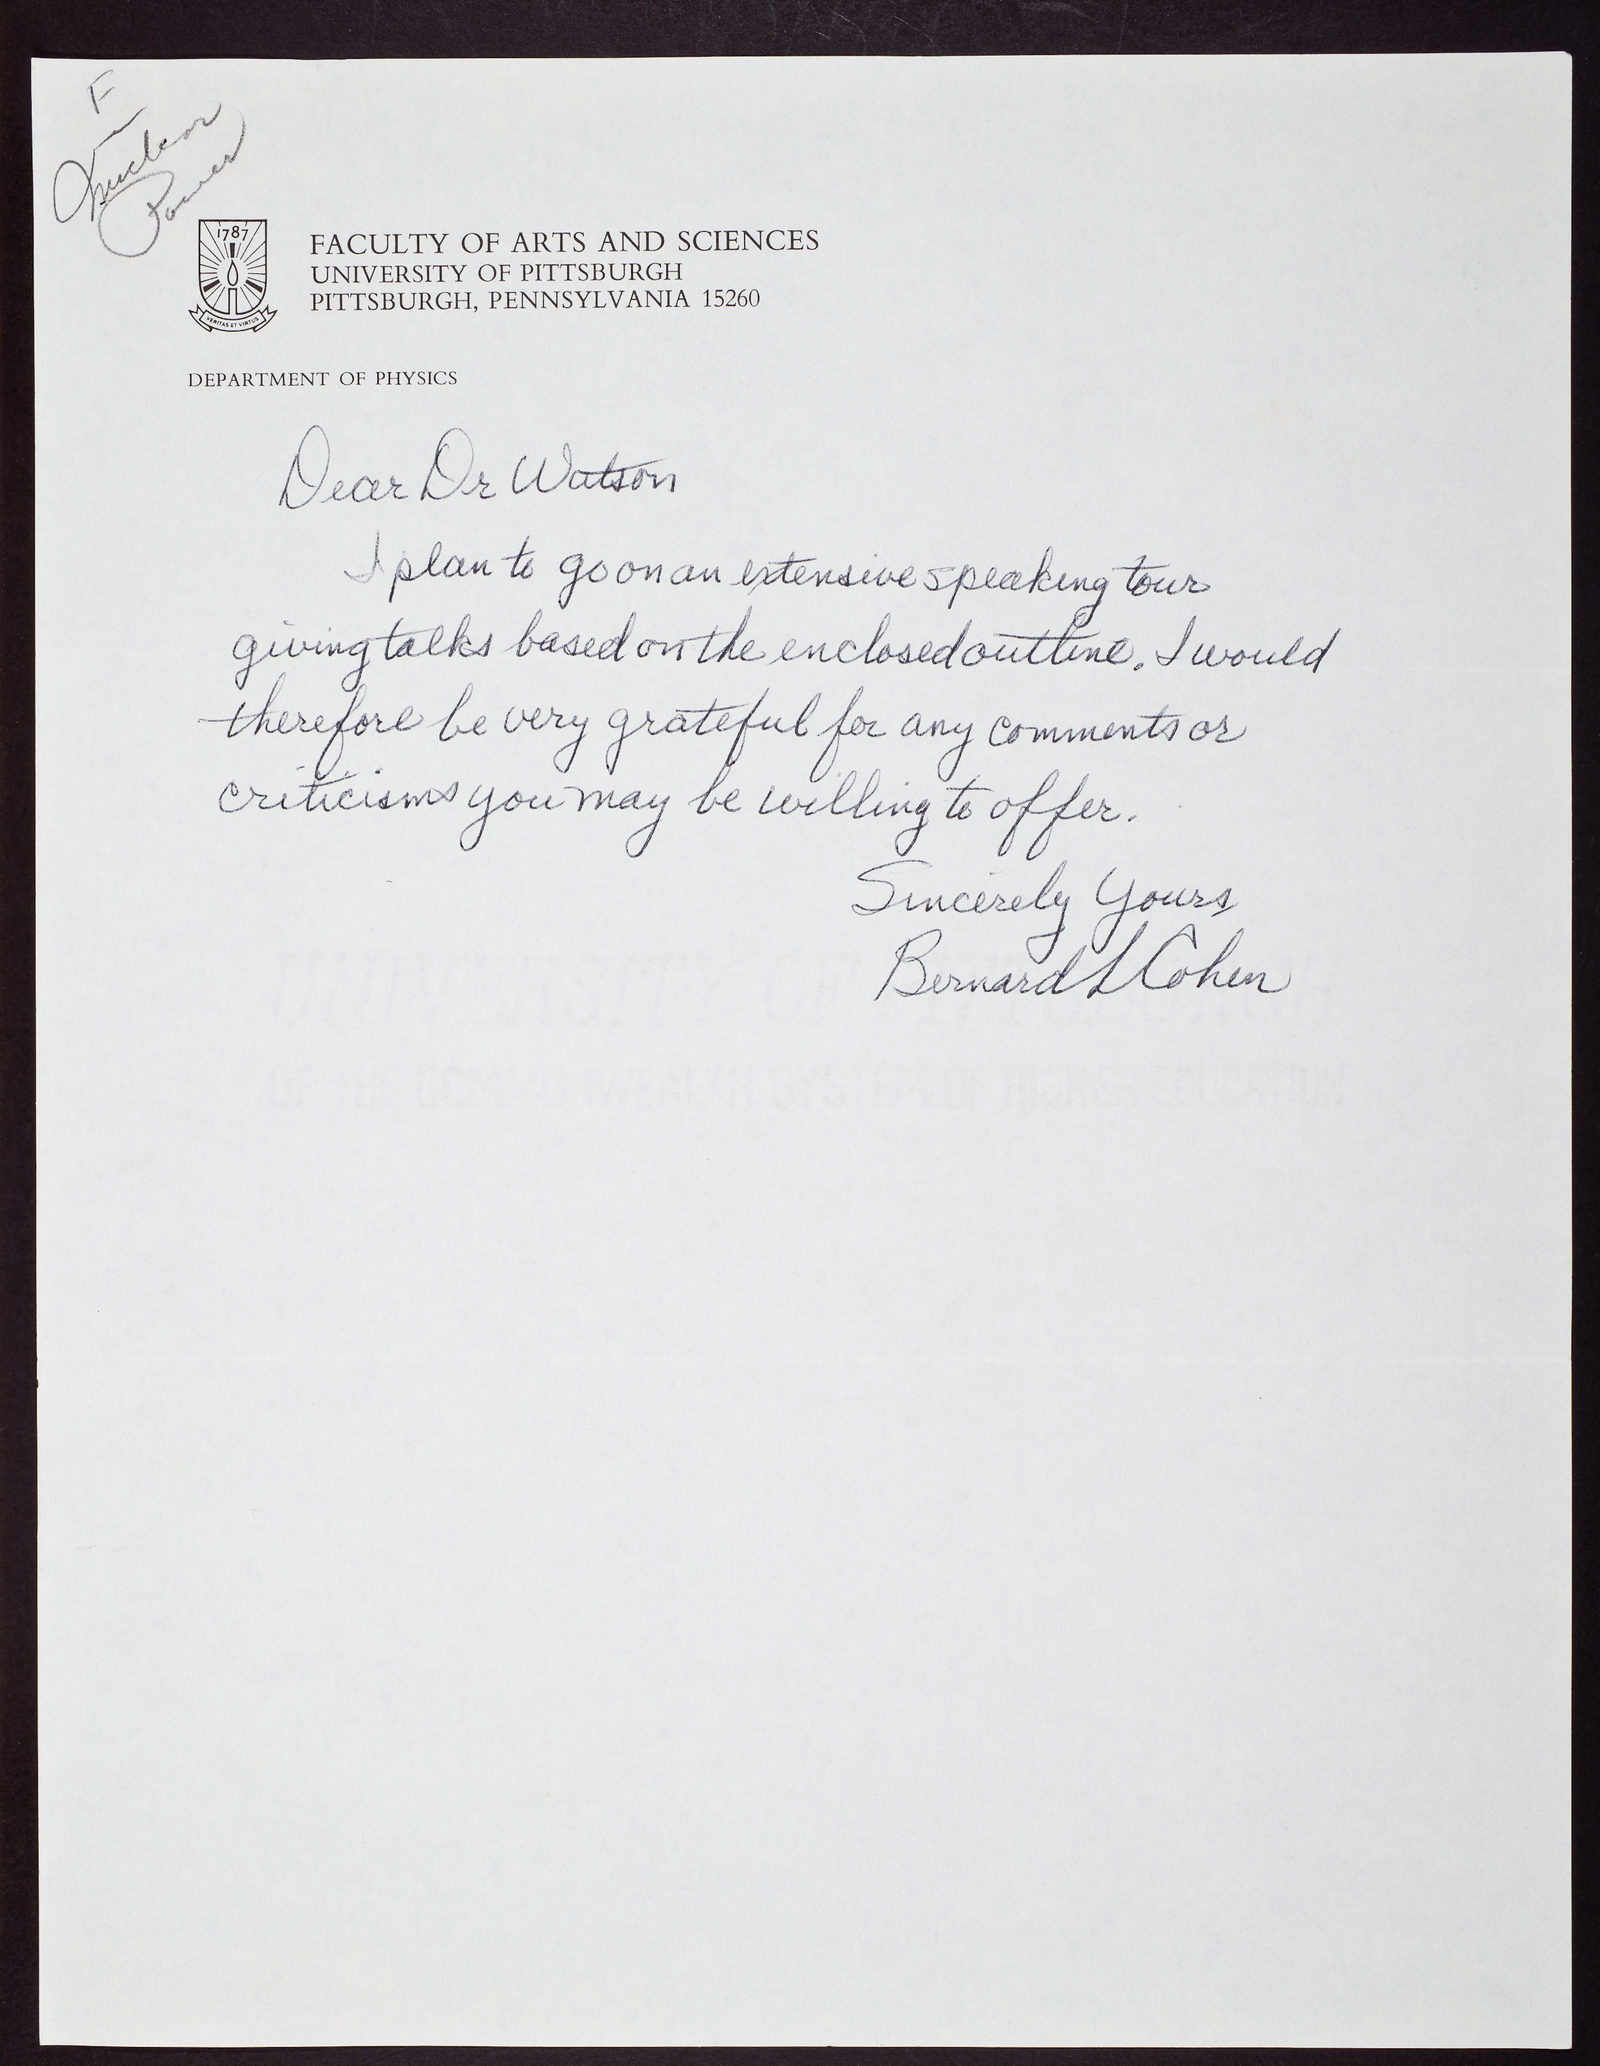 F
Nuclear
Power
1787
VERITAS ET VIRTUS
FACULTY OF ARTS AND SCIENCES
UNIVERSITY OF PITTSBURGH
PITTSBURGH, PENNSYLVANIA 15260
DEPARTMENT OF PHYSICS
Dear Dr Watson
I plan to go on an extensive speaking tour
giving talks based on the enclosed outline. I would
therefore be very grateful for any comments or
criticisms you may be willing to offer.
Sincerely Yours
Bernard L Cohen